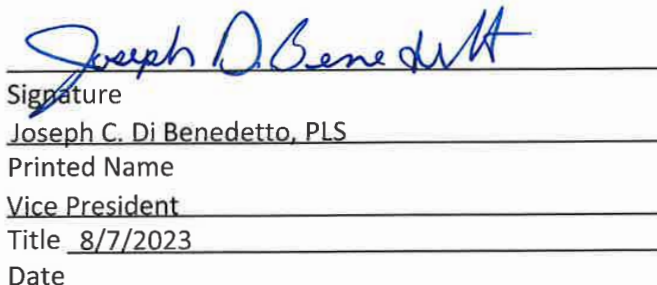 Joseph Di Benedetto
Signature
Joseph C. Di Benedetto, PLS
Printed Name
Vice President
Title 8/7/2023
Date